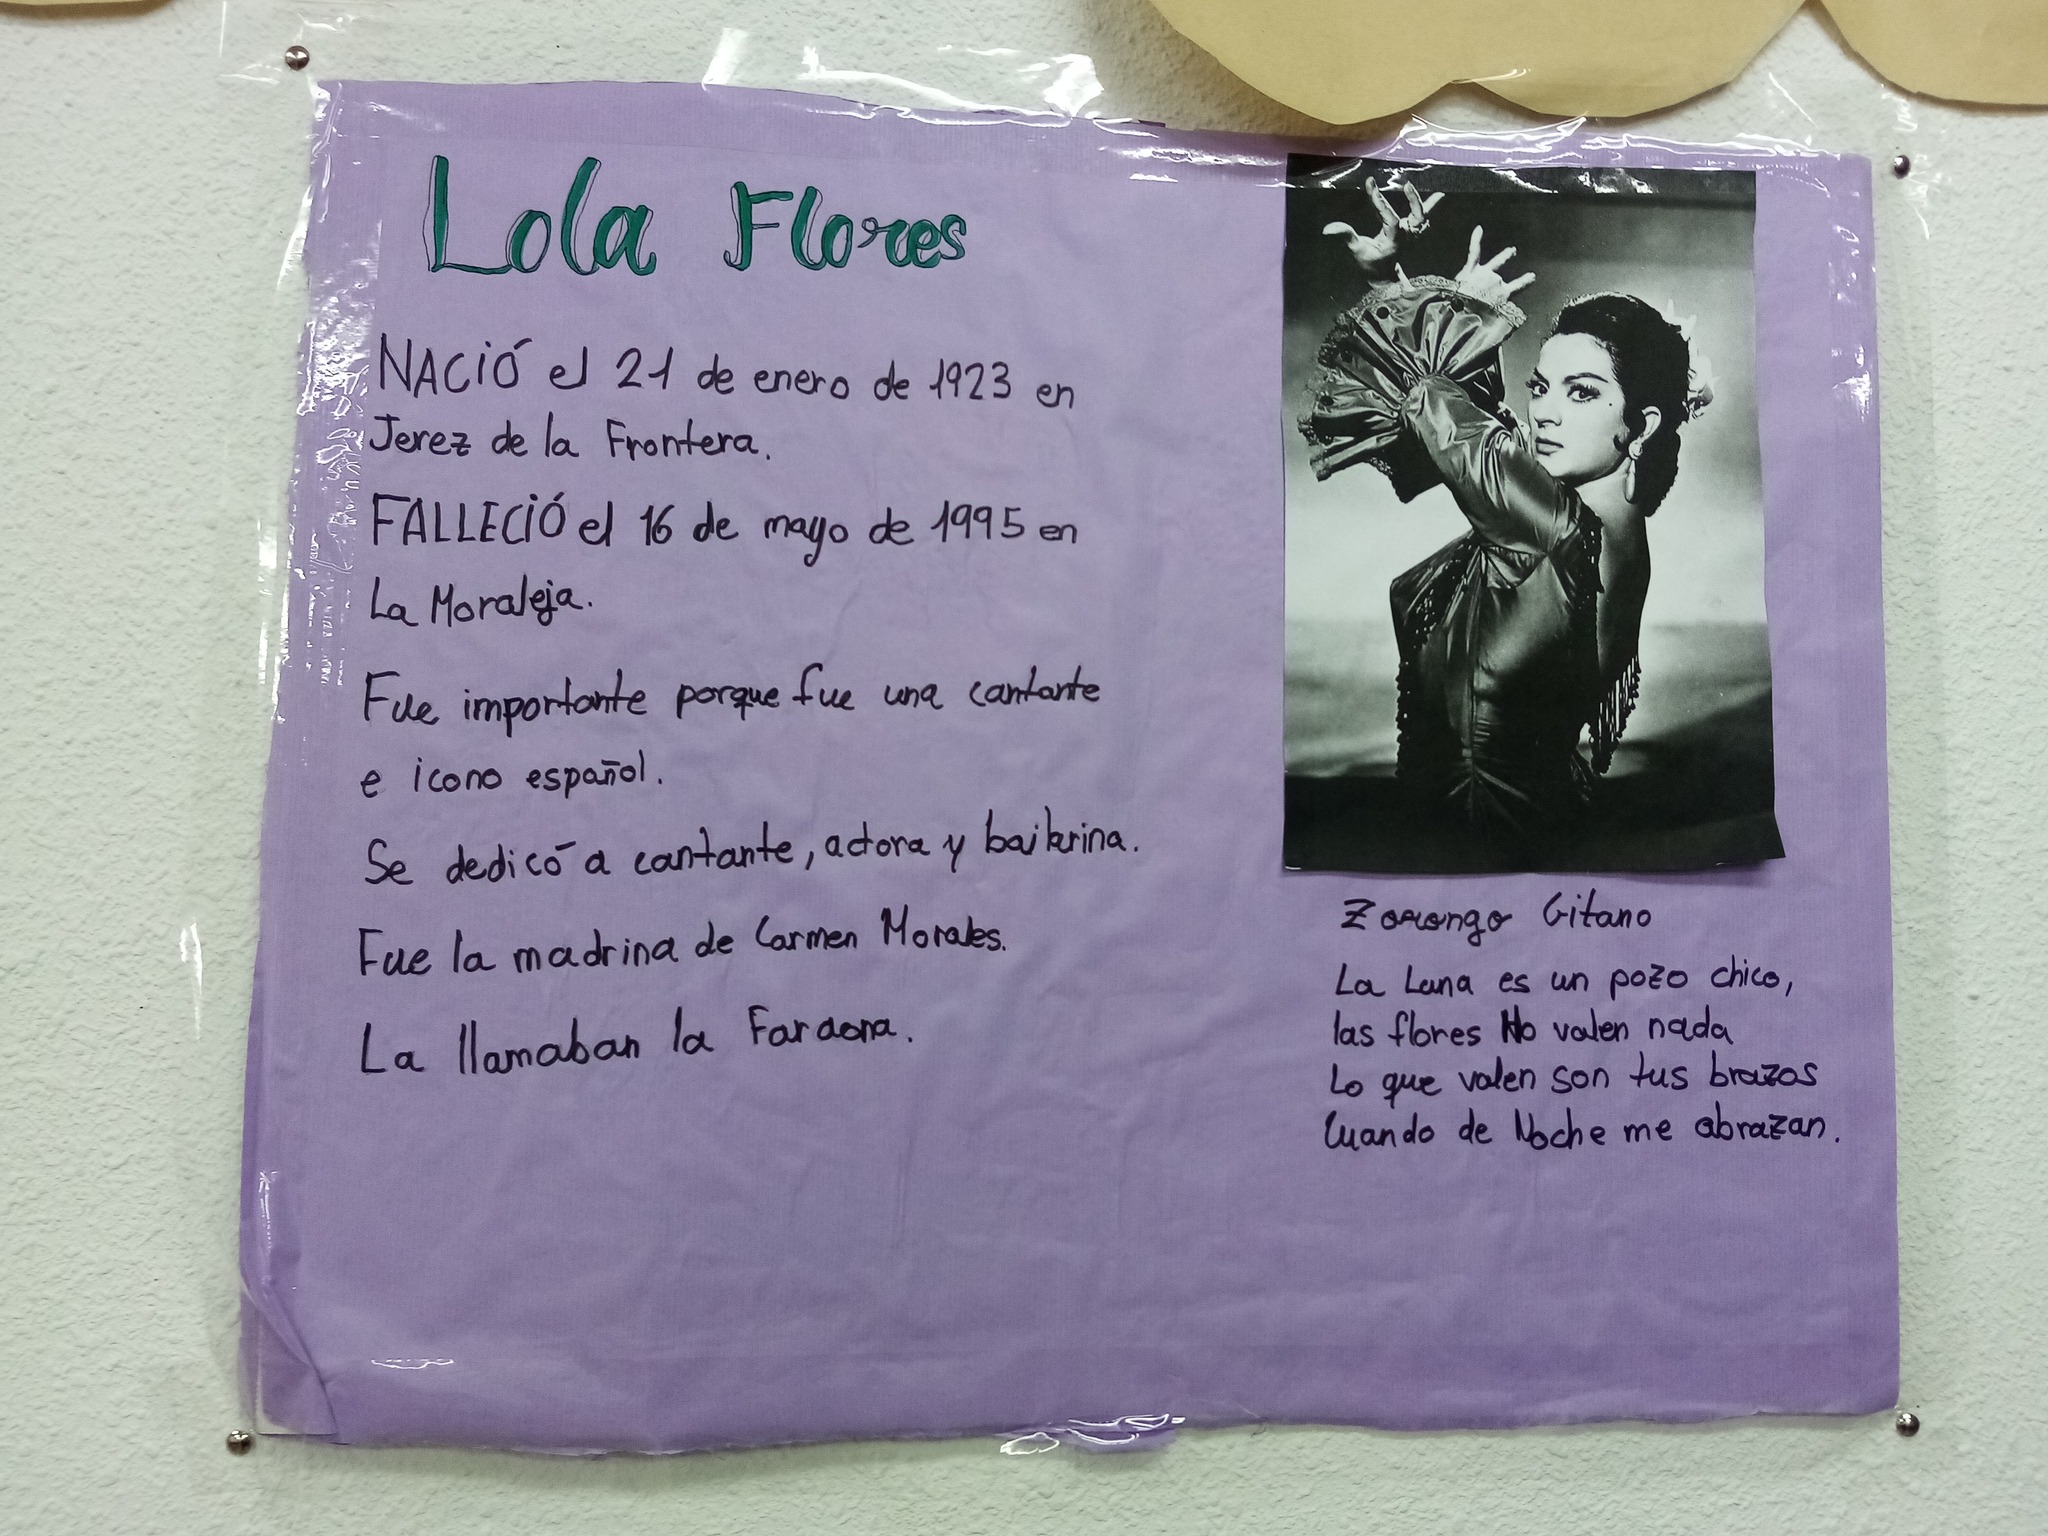 Lola Flores
NACIÓ el 21 de enero de 1923 en
Jerez de la Frontera.
FALLECIÓ el 16 de mayo de 1995 en
La Moraleja.
Fue importante porque fue una cantante
e icono español.
Se dedicó a cantante, actora y bailarina.
Fue la madrina de Carmen Morales.
La llamaban la Faraona.
Zorongo Gitano
La Luna es un pozo chico,
las flores No valen nada
Lo que valen son tus brazos
Cuando de Noche me abrazan.